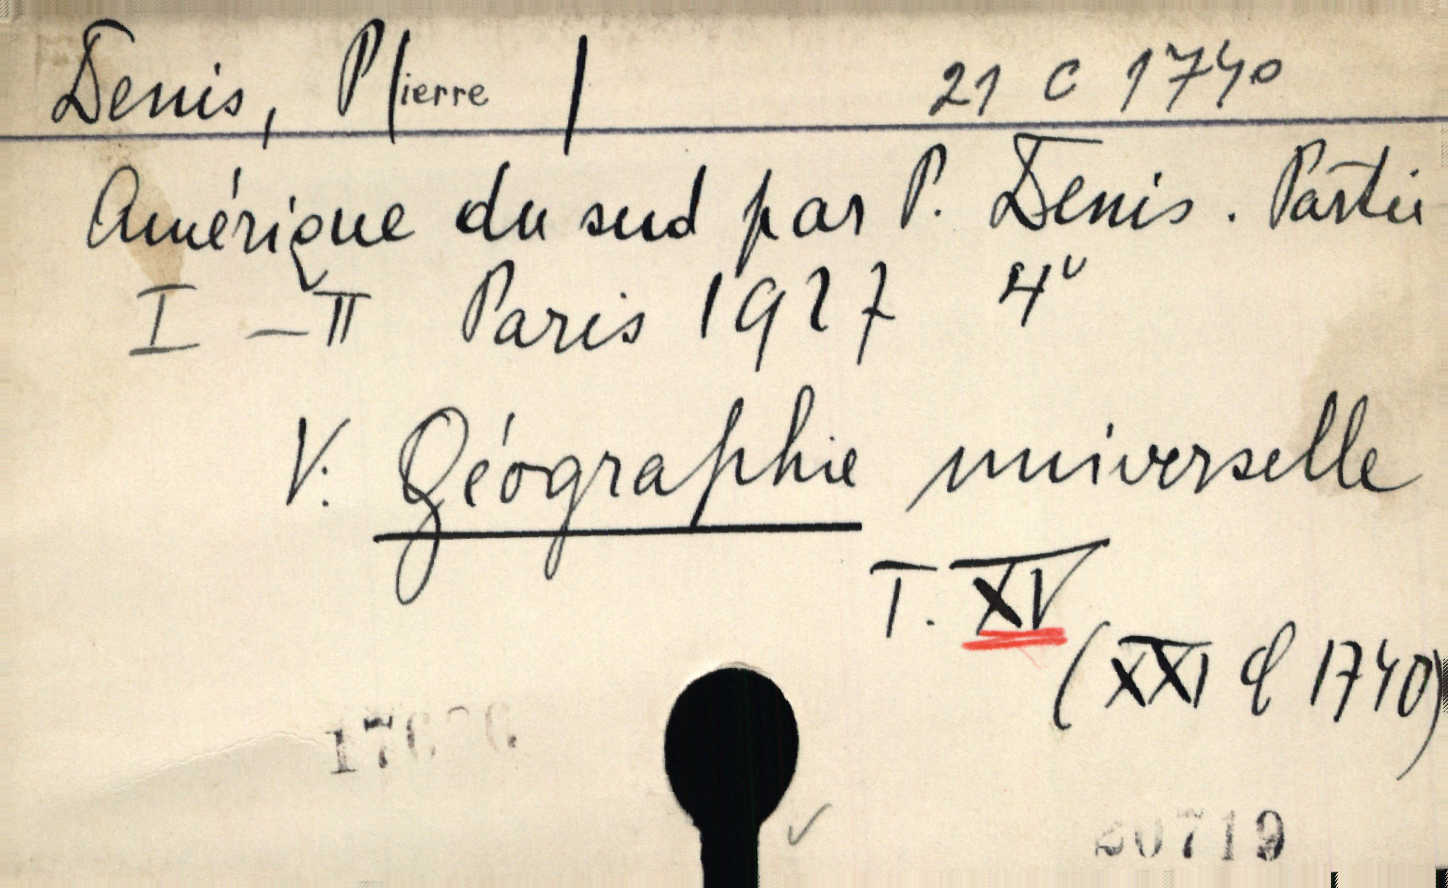 Denis, P(ierre) 21 C 1740
Amérique du sud par P. Denis. Partie
I - II Paris 1927 4°
V. Géographie universelle
T. XV
(XXI C 1740)
20719